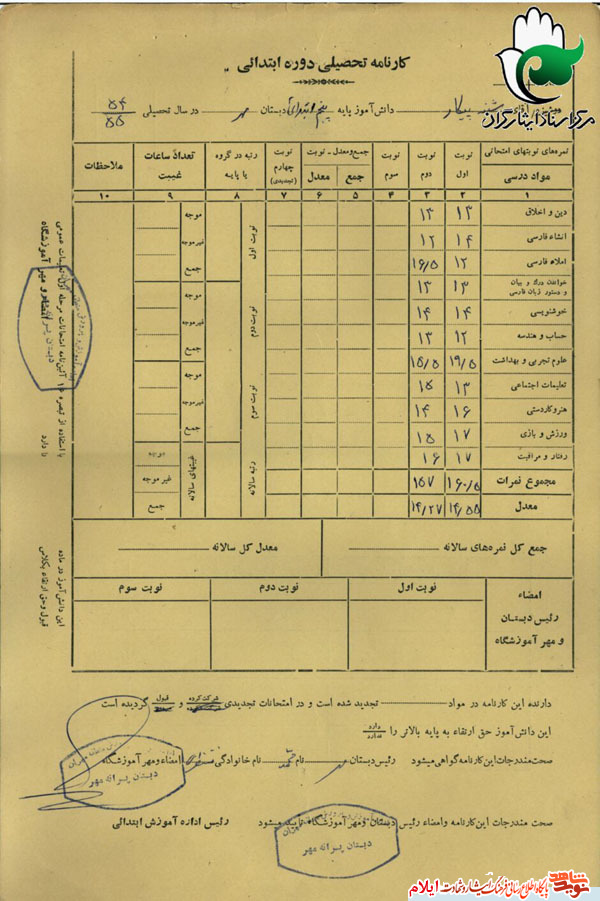 کارنامه تحصیلی دوره ابتدائی
مرکز اسناد ایثارگران
آقای پیکار دانش‌آموز پایه پنجم ابتدائی دبستان مهر در سال تحصیلی ۵۴ ۵۵
نمره‌های نوبتهای امتحانی
مواد درسی
نوبت اول
نوبت دوم
نوبت سوم
جمع و معدل ـ نوبت
جمع
معدل
نوبت چهارم (تجدیدی)
رتبه در گروه یا پایه
تعداد ساعات غیبت
ملاحظات
۱ ۲ ۳ ۴ ۵ ۶ ۷ ۸ ۹ ۱۰
دین و اخلاق ۱۳ ۱۴
انشاء فارسی ۱۴ ۱۲
املاء فارسی ۱۲ ۱۶/۵
خواندن درک و بیان و دستور زبان فارسی ۱۳ ۱۳
خوشنویسی ۱۴ ۱۴
حساب و هندسه ۱۲ ۱۳
علوم تجربی و بهداشت ۱۹/۵ ۱۵/۵
تعلیمات اجتماعی ۱۳ ۱۵
هنر و کاردستی ۱۶ ۱۴
ورزش و بازی ۱۷ ۱۵
رفتار و مراقبت ۱۷ ۱۶
مجموع نمرات ۱۶۰/۵ ۱۵۷
معدل ۱۴/۵۵ ۱۴/۲۷
نوبت اول
موجه
غیر موجه
جمع
نوبت دوم
موجه
غیر موجه
جمع
نوبت سوم
موجه
غیر موجه
جمع
رتبه سالانه
موجه
غیر موجه
جمع
جمع کل نمره‌های سالانه
معدل کل سالانه
امضاء
رئیس دبستان
و مهر آموزشگاه
نوبت اول
نوبت دوم
نوبت سوم
دارنده این کارنامه در مواد تجدید شده است و در امتحانات تجدیدی شرکت کرده و قبول گردیده است
این دانش‌آموز حق ارتقاء به پایه بالاتر را دارد ندارد
صحت مندرجات این کارنامه گواهی میشود رئیس دبستان مهر نام نام خانوادگی امضاء و مهر آموزشگاه
دبستان پسرانه مهر
صحت مندرجات این کارنامه و امضاء رئیس دبستان و مهر آموزشگاه تایید میشود رئیس اداره آموزش ابتدائی
دبستان پسرانه مهر
با استفاده از تبصره ۱۵ آئین‌نامه امتحانات مرحله اول تعلیمات عمومی
امضاء و مهر آموزشگاه
دبستان پسرانه مهر
این دانش آموز در ماده
قبول و حق ارتقاء بکلاس
را دارد
نوید شاهد
پایگاه اطلاع رسانی فرهنگ ایثار و شهادت ایلام